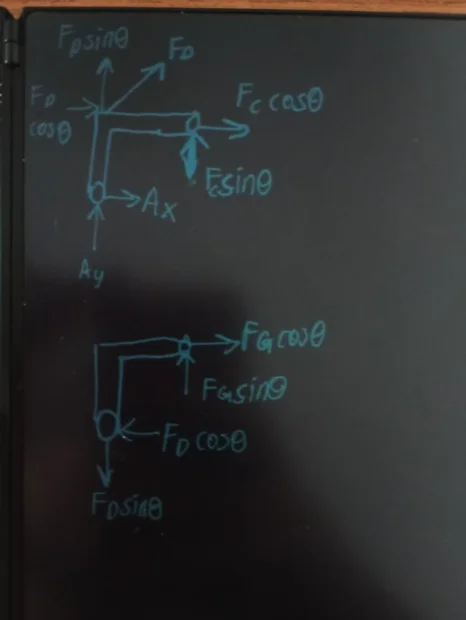 FDsinθ
FD
FD
cosθ
FC cosθ
FCsinθ
Ax
Ay
FGcosθ
FGsinθ
FDcosθ
FDsinθ